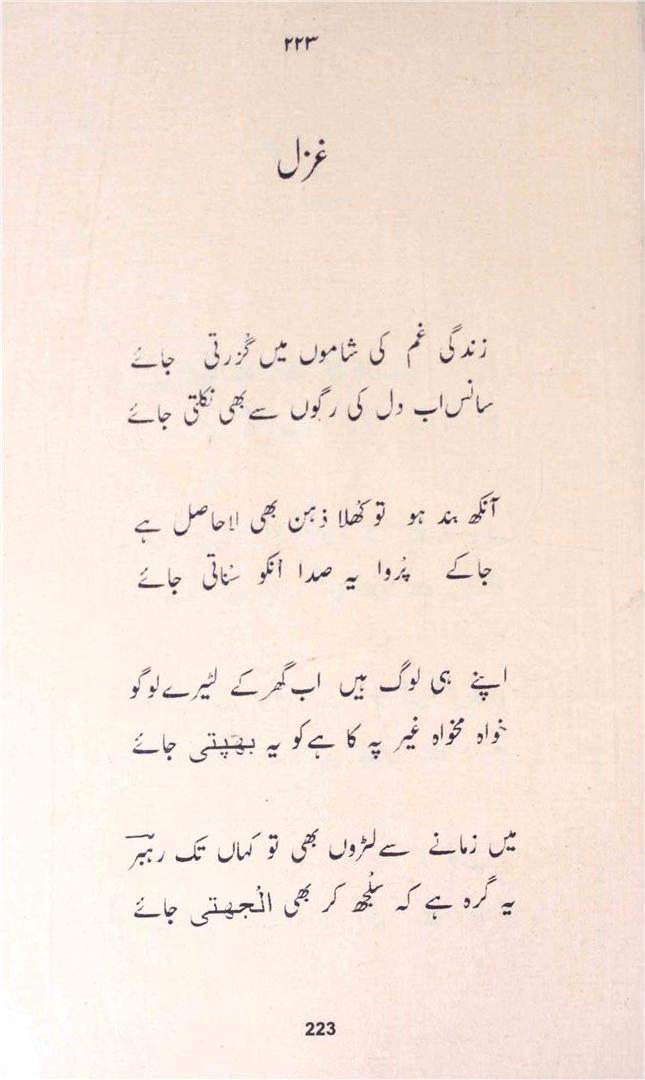 ۲۲۳
غزل
زندگی غم کی شاموں میں گزرتی جائے
سانس اب دل کی رگوں سے بھی نکلتی جائے
آنکھ بند ہو تو کھلا ذہن بھی لاحاصل ہے
جا کے پُروا یہ صدا اُنکو سُناتی جائے
اپنے ہی لوگ ہیں اب گھر کے لٹیرے لوگو
خواہ مخواہ غیر پہ کاہے کو یہ بھپتی جائے
میں زمانے سے لڑوں بھی تو کہاں تک رہبرؔ
یہ گرہ ہے کہ سُلجھ کر بھی اُلجھتی جائے
223